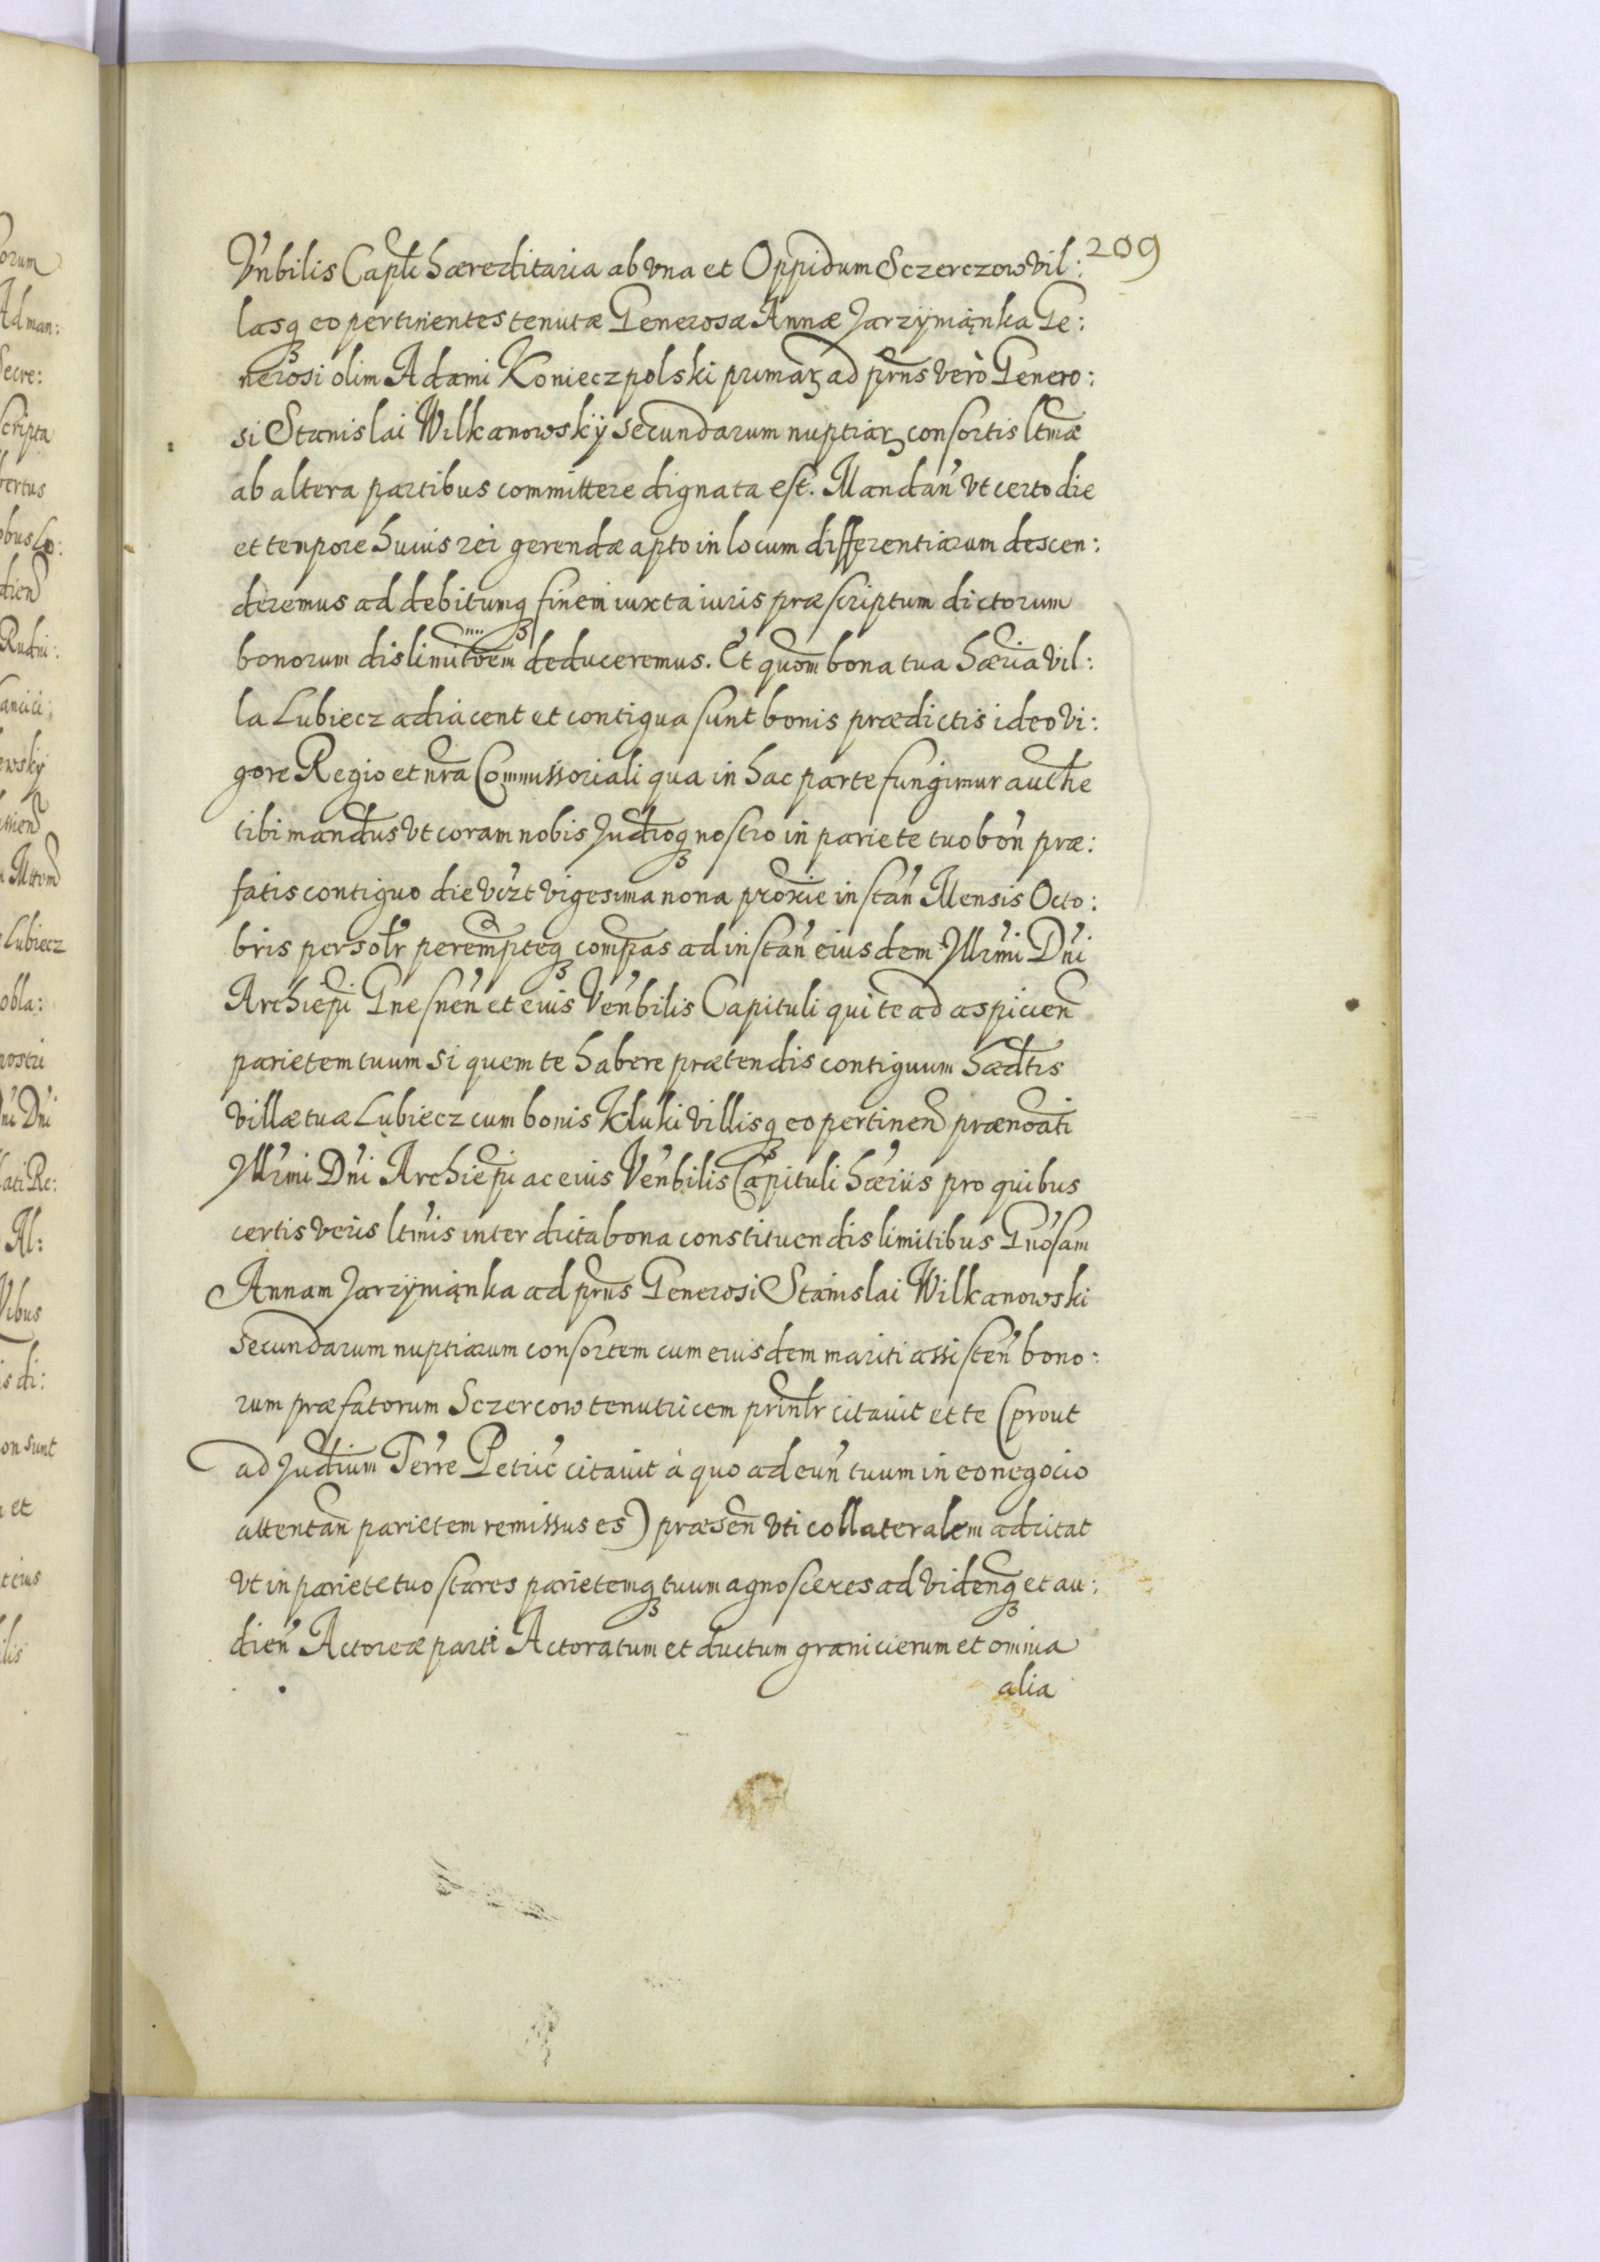 209
Vn̄bilis Capłi hæreditaria ab vna et Oppidum Sczerczow vil:
lasqꝫ eo pertinentes tenutæ Generosæ Annæ Jarzymiąnka Ge:
nerosi olim Adami Konieczpolski primarꝫ ad prn̄s verò Genero:
si Stanislai Wilkanowskÿ secundarum nuptiarꝫ consortis ltm̄æ
ab altera partibus committere dignata est. Mandan̄ vt certo die
et tempore huius rei gerendæ apto in locum differentiarum descen:
deremus ad debitumqꝫ finem iuxta iuris præscriptum dictorum
bonorum dislimitōem deduceremus. Et quōm bona tua hæria vil:
la Lubiecz adiacent et contigua sunt bonis prædictis ideo vi:
gore Regio et nr̄a Commissoriali qua in hac parte fungimur autĥe
tibi mandm̄us vt coram nobis Judīoqꝫ nostro in pariete tuo bon̄ præ:
fatis contiguo die vcz̄t vigesima nona proxīe instan̄ Mensis Octo:
bris persoł̄r peremp̄teqꝫ comp̄as ad instan̄ eiusdem Jllr̄mi Dn̄i
Archiep̄i Gnesnen̄ et eius Ven̄bilis Capituli qui te ad aspicien̄
parietem tuum si quem te habere prætendis contiguum hæd̄tis
villæ tuæ Lubiecz cum bonis Kluki villisqꝫ eo pertinen̄ prænoāti
Jllr̄mi Dn̄i Archiep̄i ac eius Ven̄bilis Capituli hær̄iis pro quibus
certis veris ltm̄is inter dicta bona constituendis limitibus Gn̄osam
Annam Jarzÿmiąnka ad prn̄s Generosi Stanislai Wilkanowski
secundarum nuptiarum consortem cum eiusdem mariti assisten̄ bono:
rum præfatorum Sczercow tenutricem prin̄łr citauit et te (prout
ad Judīum Terrē Petric̄ citauit à quo ad eun̄ tuum in eo negocio
attentan̄ parietem remissus es) præsen̄ vti collateralem adcitat
vt in pariete tuo stares parietemqꝫ tuum agnosceres ad viden̄qꝫ et au:
dien̄ Actoreæ parti Actoratum et ductum granicierum et omnia
alia